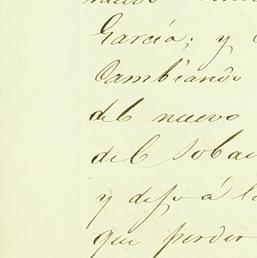 García; y
Cambiando
del nuevo
del
y dejo á
que perder